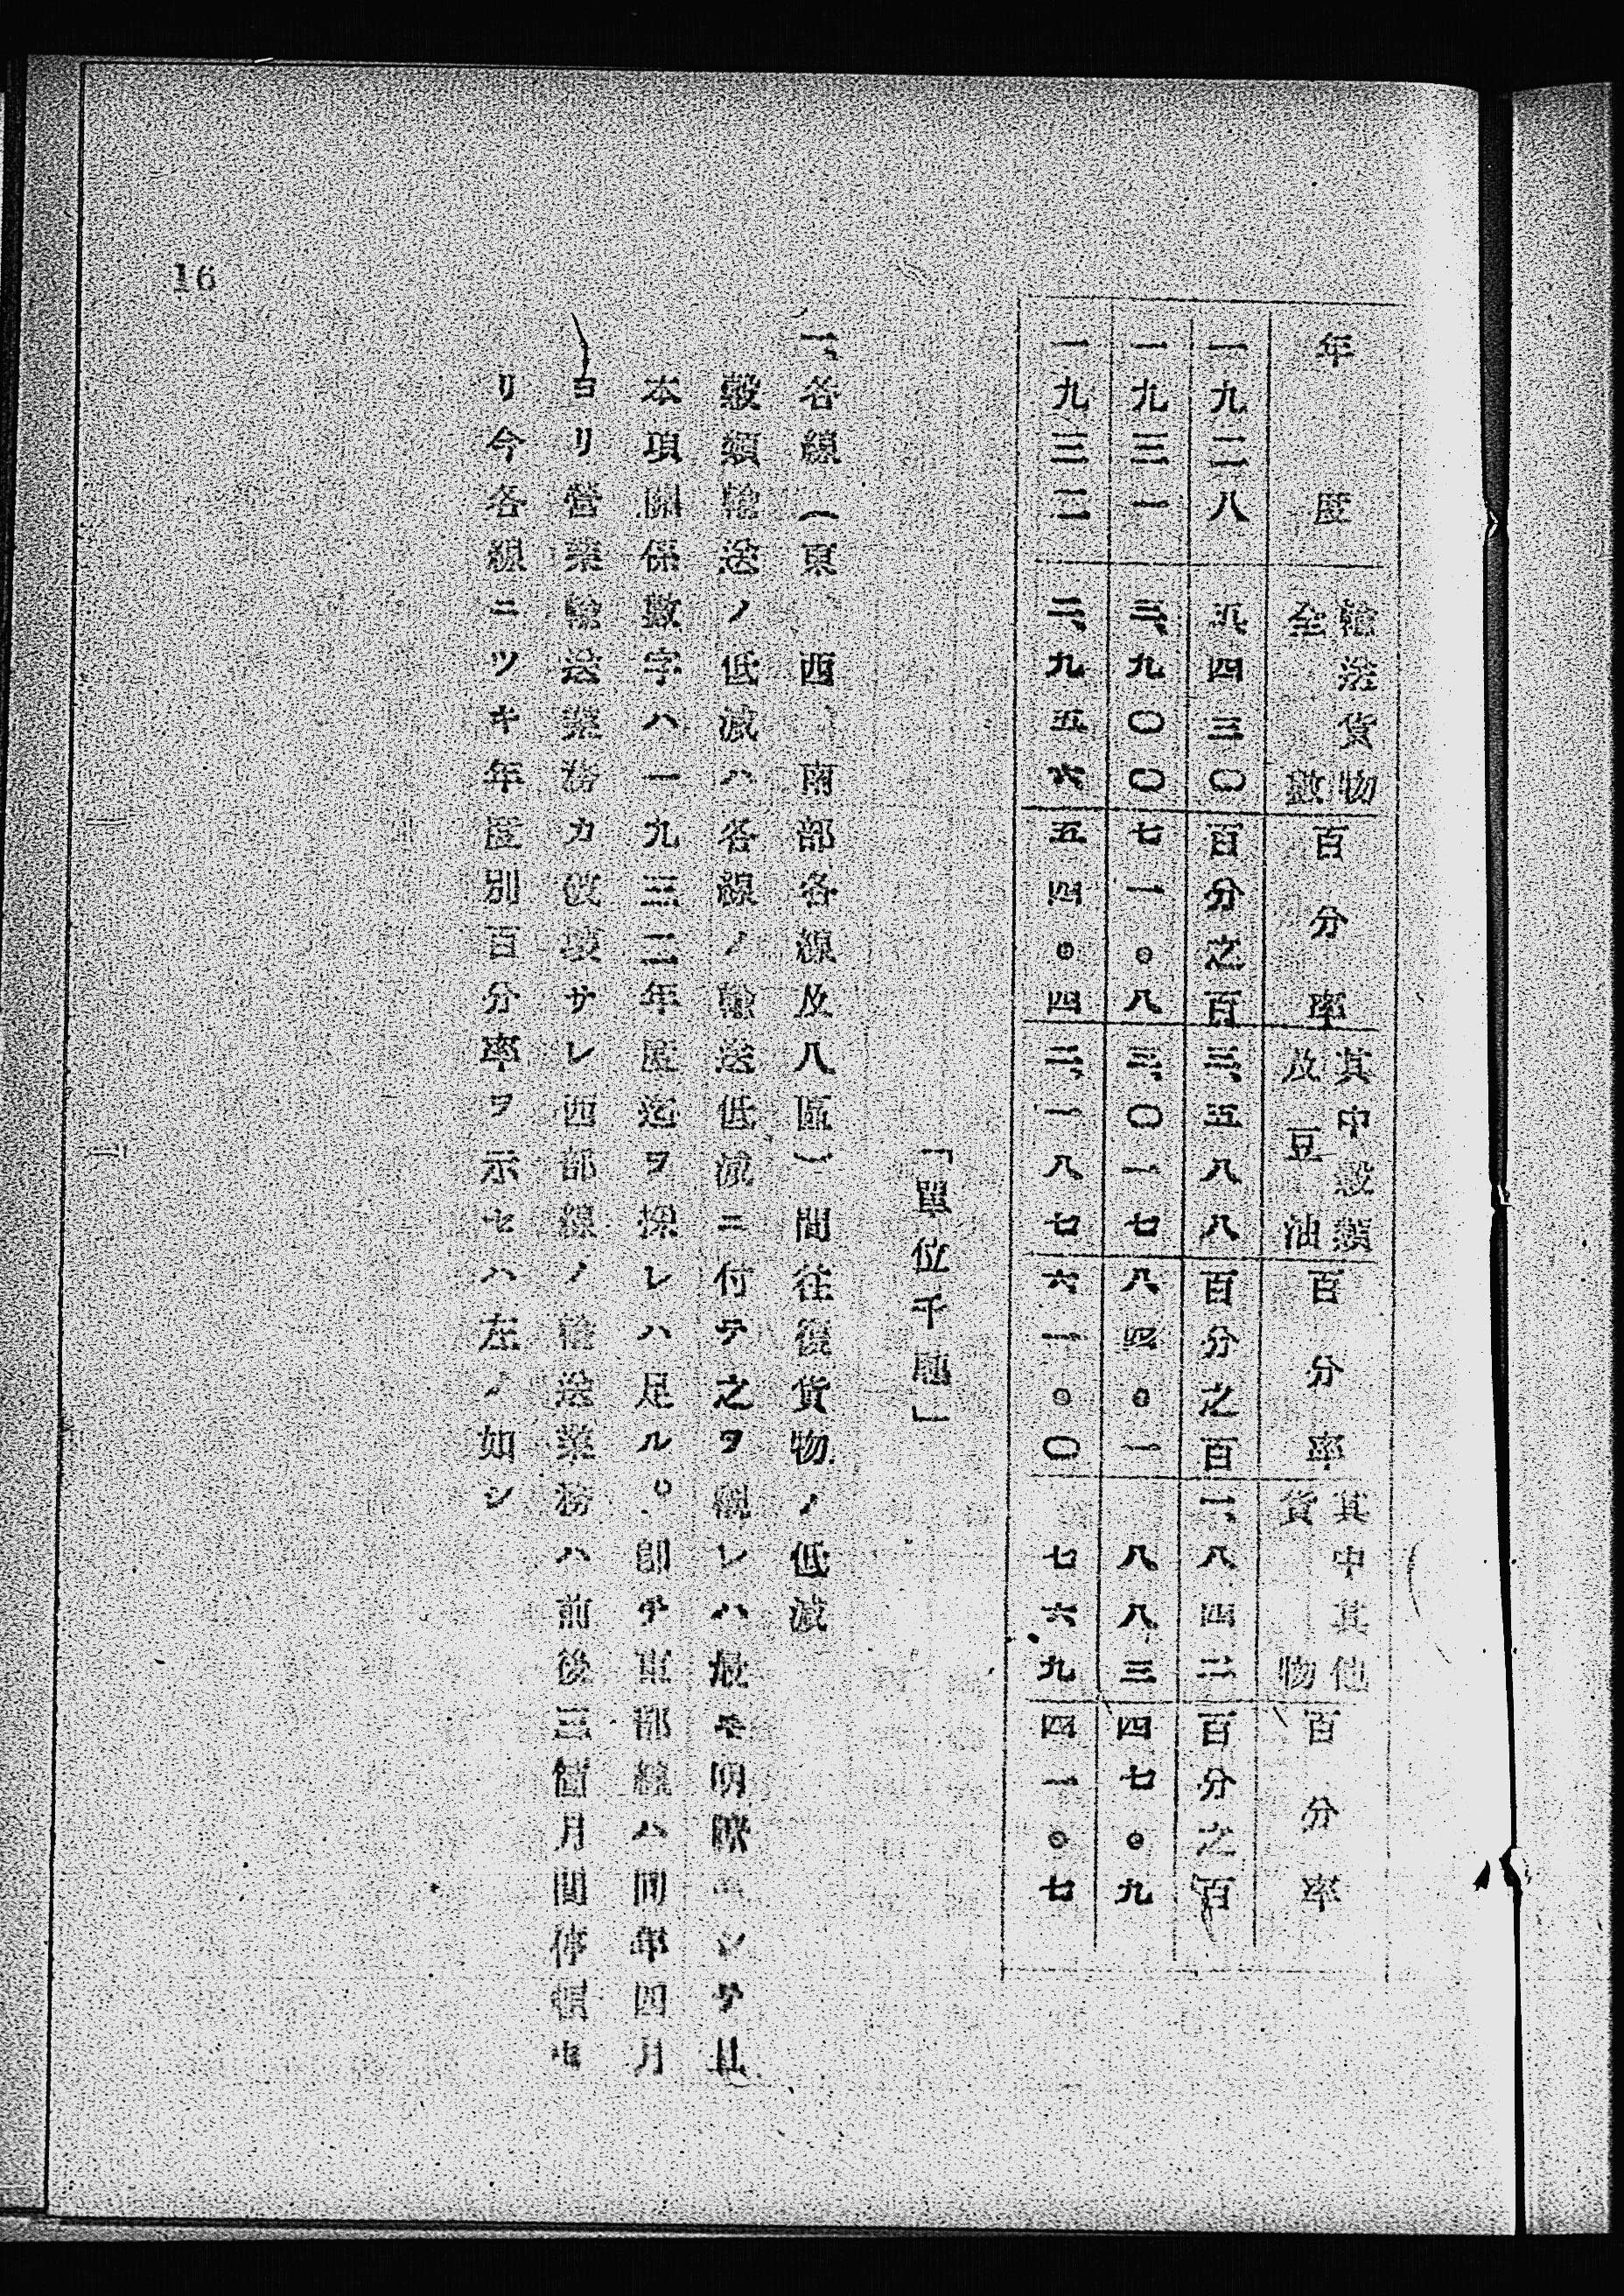 年度 輸送貨物全數 百分率 其中穀類及豆油 百分率 其中其他貨物 百分率
一九二八 五、四三〇 百分之百 三、五八八 百分之百 一、八四二 百分之百
一九三一 三、九〇〇 七一。八 三、〇一七 八四。一 八八三 四七。九
一九三二 二、九五六 五四。四 二、一八七 六一。〇 七六九 四一。七
「單位千瓲」
一、各線(東、西、南部各線及八區)間往復貨物ノ低減
穀類輸送ノ低減ハ各線ノ輸送低減ニ付テ之ヲ觀レハ最モ明瞭ニシテ且
本項關係數字ハ一九三二年度迄ヲ採レハ足ル。卽チ東部線ハ同年四月
ヨリ營業輸送業務カ破壞サレ西部線ノ輸送業務ハ前後三箇月間停頓セ
リ今各線ニツキ年度別百分率ヲ示セハ左ノ如シ
16